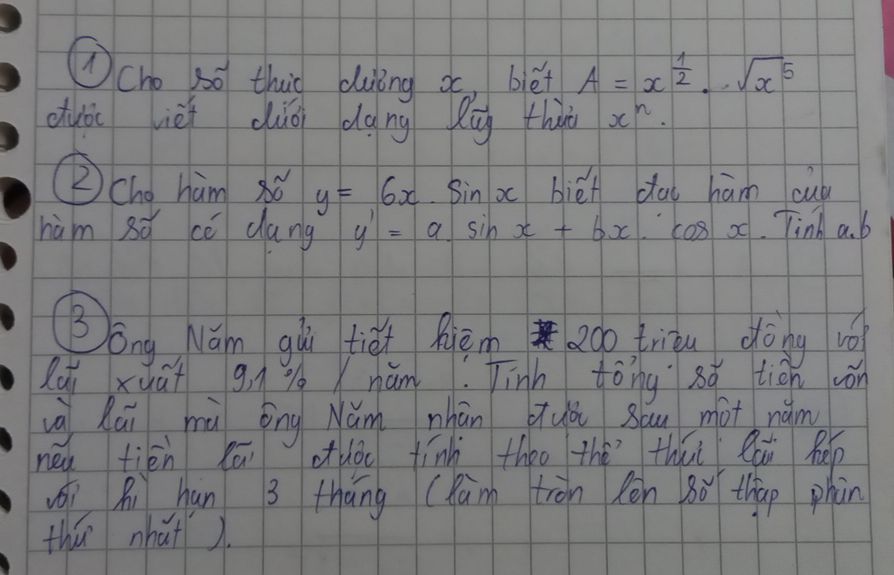 ① Cho số thực dương x, biết A = x^{1/2} . √x^5
được viết dưới dạng lũy thừa x^n.
② Cho hàm số y = 6x. sin x biết đạo hàm của
hàm số có dạng y' = a. sin x + bx. cos x. Tính a.b
③ Ông Năm gửi tiết kiệm 200 triệu đồng với
lãi xuất 9,1 % / năm. Tính tổng số tiền vốn
và lãi mà ông Năm nhận được sau một năm
nếu tiền lãi được tính theo thể thức lãi kép
với kì hạn 3 tháng (làm tròn lên số thập phân
thứ nhất).